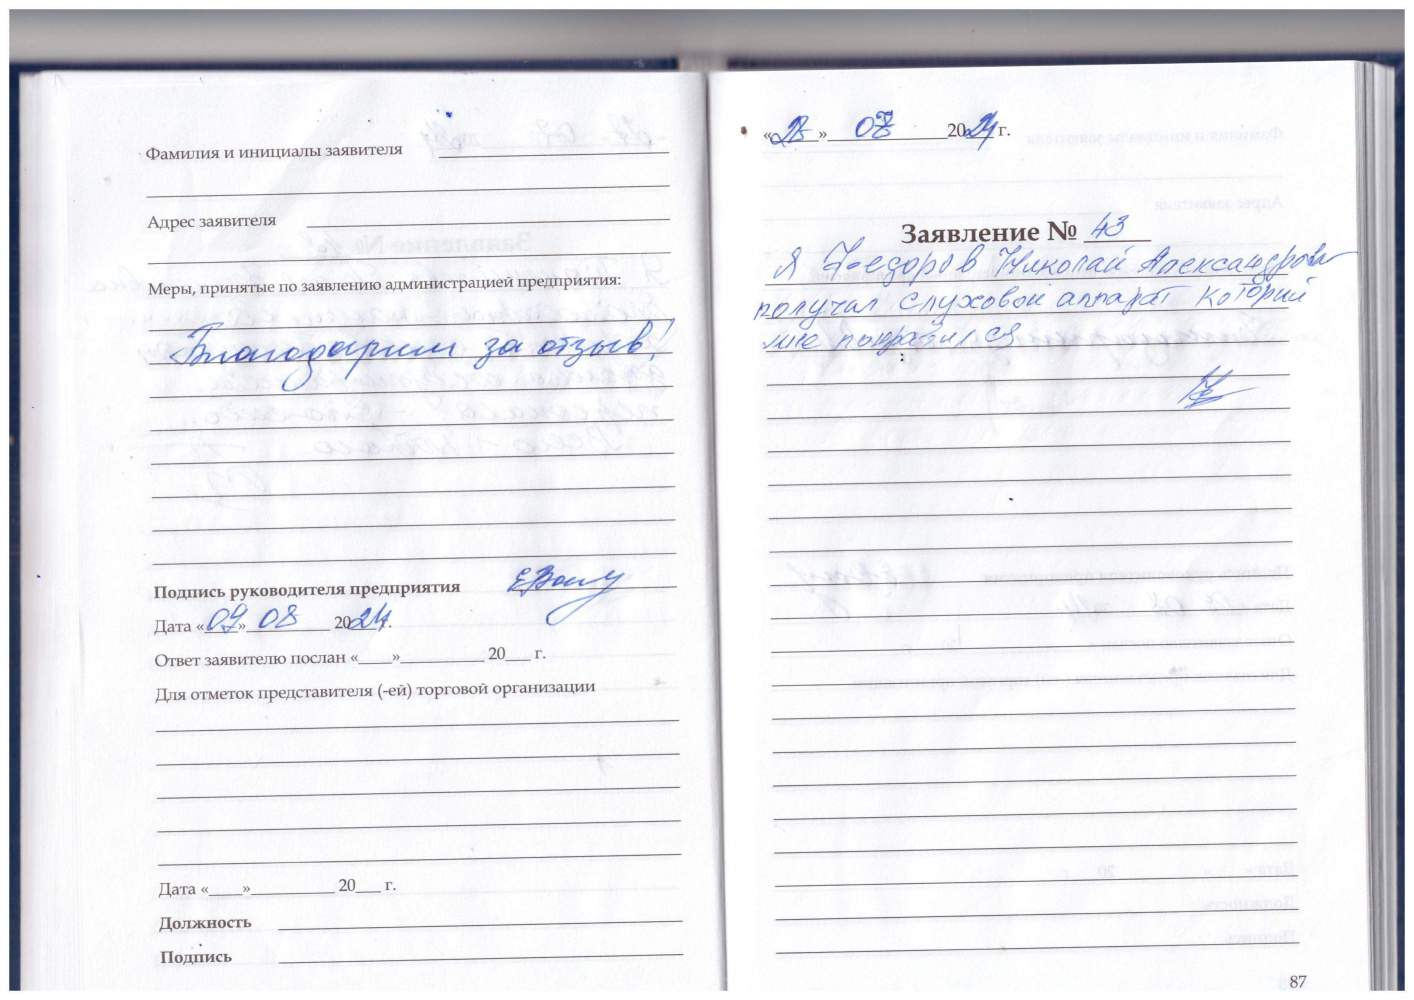 Фамилия и инициалы заявителя
Адрес заявителя
Меры, принятые по заявлению администрацией предприятия:
Благодарим за отзыв!
Подпись руководителя предприятия
Дата «09» 08 2024г.
Ответ заявителю послан «____»__________ 20___ г.
Для отметок представителя (-ей) торговой организации
Дата «____»__________ 20___ г.
Должность
Подпись
» 2024г.
Заявление № 43
Я Федоров Николай Александрович
получал слуховой аппарат который
мне понравился
87